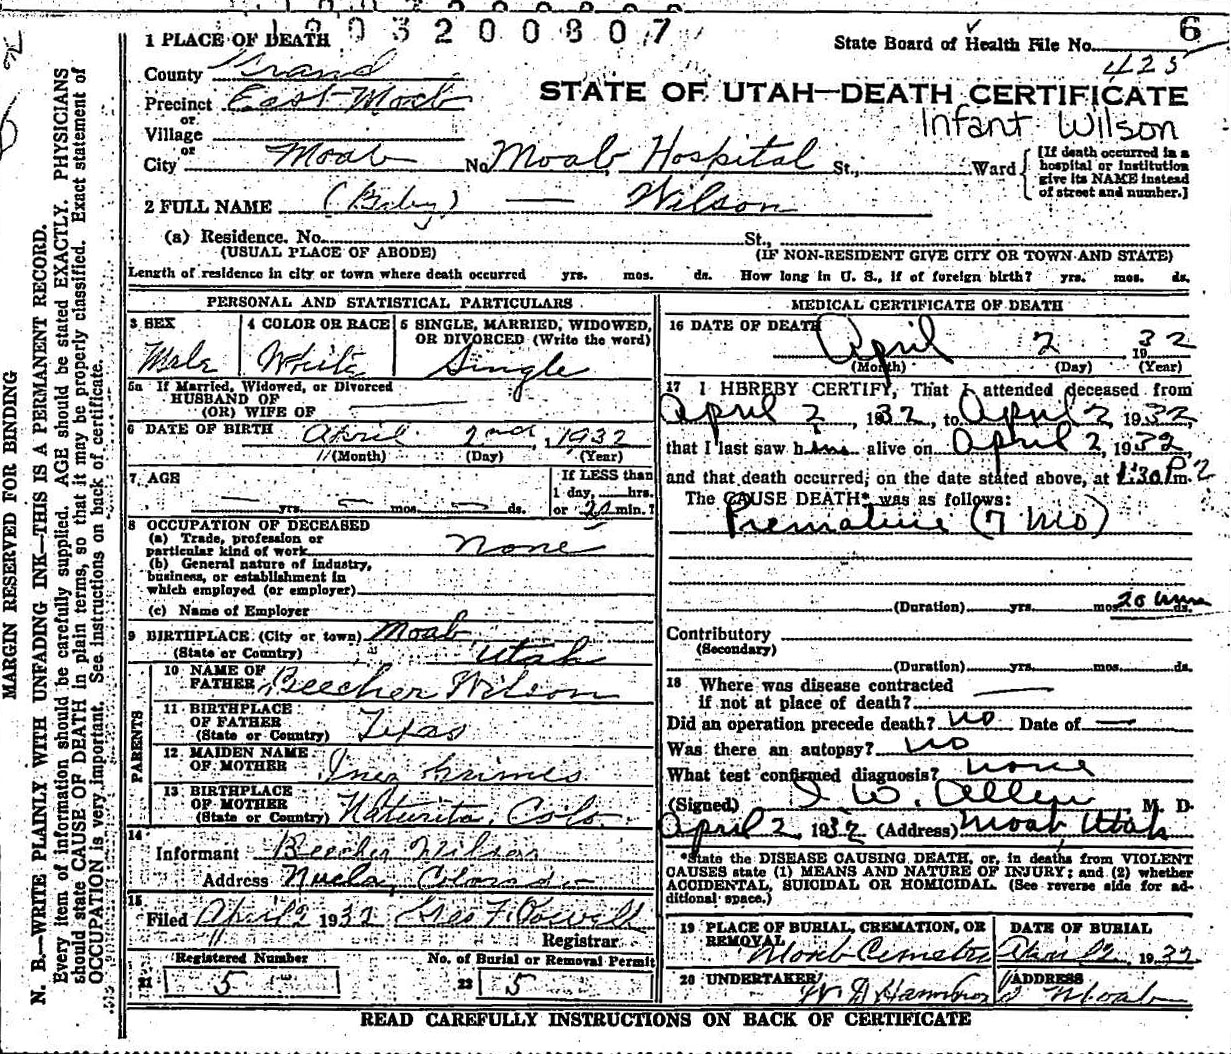 1903200807
6
State Board of Health File No.
423
1 PLACE OF DEATH
County Grand
Precinct East Moab
or
Village
or
City Moab No. Moab Hospital St., Ward
STATE OF UTAH—DEATH CERTIFICATE
Infant Wilson
[If death occurred in a
hospital or institution
give its NAME instead
of street and number.]
2 FULL NAME (Baby) — Wilson
(a) Residence. No. St.,
(USUAL PLACE OF ABODE) (IF NON-RESIDENT GIVE CITY OR TOWN AND STATE)
Length of residence in city or town where death occurred yrs. mos. ds. How long in U. S., if of foreign birth? yrs. mos. ds.
PERSONAL AND STATISTICAL PARTICULARS
3 SEX
Male
4 COLOR OR RACE
White
5 SINGLE, MARRIED, WIDOWED,
OR DIVORCED (Write the word)
Single
5a If Married, Widowed, or Divorced
HUSBAND OF
(OR) WIFE OF
6 DATE OF BIRTH April 2nd, 1932
(Month) (Day) (Year)
7 AGE
— yrs. — mos. — ds.
If LESS than
1 day, hrs.
or 20 min.?
8 OCCUPATION OF DECEASED
(a) Trade, profession or
particular kind of work none
(b) General nature of industry,
business, or establishment in
which employed (or employer)
(c) Name of Employer
9 BIRTHPLACE (City or town) Moab
(State or Country) Utah
PARENTS
10 NAME OF
FATHER Beecher Wilson
11 BIRTHPLACE
OF FATHER
(State or Country) Texas
12 MAIDEN NAME
OF MOTHER Inez Grimes
13 BIRTHPLACE
OF MOTHER
(State or Country) Naturita, Colo.
14
Informant Beecher Wilson
Address Nucla, Colorado
15
Filed April 2 1932 Geo F. Powell
Registrar
Registered Number
21 5
No. of Burial or Removal Permit
22 5
MEDICAL CERTIFICATE OF DEATH
16 DATE OF DEATH April 2 1932
(Month) (Day) (Year)
17 I HEREBY CERTIFY, That I attended deceased from
April 2, 1932, to April 2 1932
that I last saw him alive on April 2, 1932,
and that death occurred, on the date stated above, at 1:30 P.m.
The CAUSE DEATH* was as follows:
Premature (7 mo)
(Duration) yrs. mos. ds.
Contributory
(Secondary)
(Duration) yrs. mos. ds.
18 Where was disease contracted
if not at place of death? —
Did an operation precede death? no Date of —
Was there an autopsy? no
What test confirmed diagnosis? none
(Signed) I W. Allen M. D.
April 2, 1932 (Address) Moab Utah
*State the DISEASE CAUSING DEATH, or, in deaths from VIOLENT
CAUSES state (1) MEANS AND NATURE OF INJURY; and (2) whether
ACCIDENTAL, SUICIDAL OR HOMICIDAL. (See reverse side for ad-
ditional space.)
19 PLACE OF BURIAL, CREMATION, OR
REMOVAL
Moab Cemetery
DATE OF BURIAL
April 2, 1932
20 UNDERTAKER
ADDRESS
Moab
READ CAREFULLY INSTRUCTIONS ON BACK OF CERTIFICATE
MARGIN RESERVED FOR BINDING
N. B.—WRITE PLAINLY WITH UNFADING INK—THIS IS A PERMANENT RECORD.
Every item of information should be carefully supplied. AGE should be stated EXACTLY. PHYSICIANS
should state CAUSE OF DEATH in plain terms, so that it may be properly classified. Exact statement of
OCCUPATION is very important. See instructions on back of certificate.